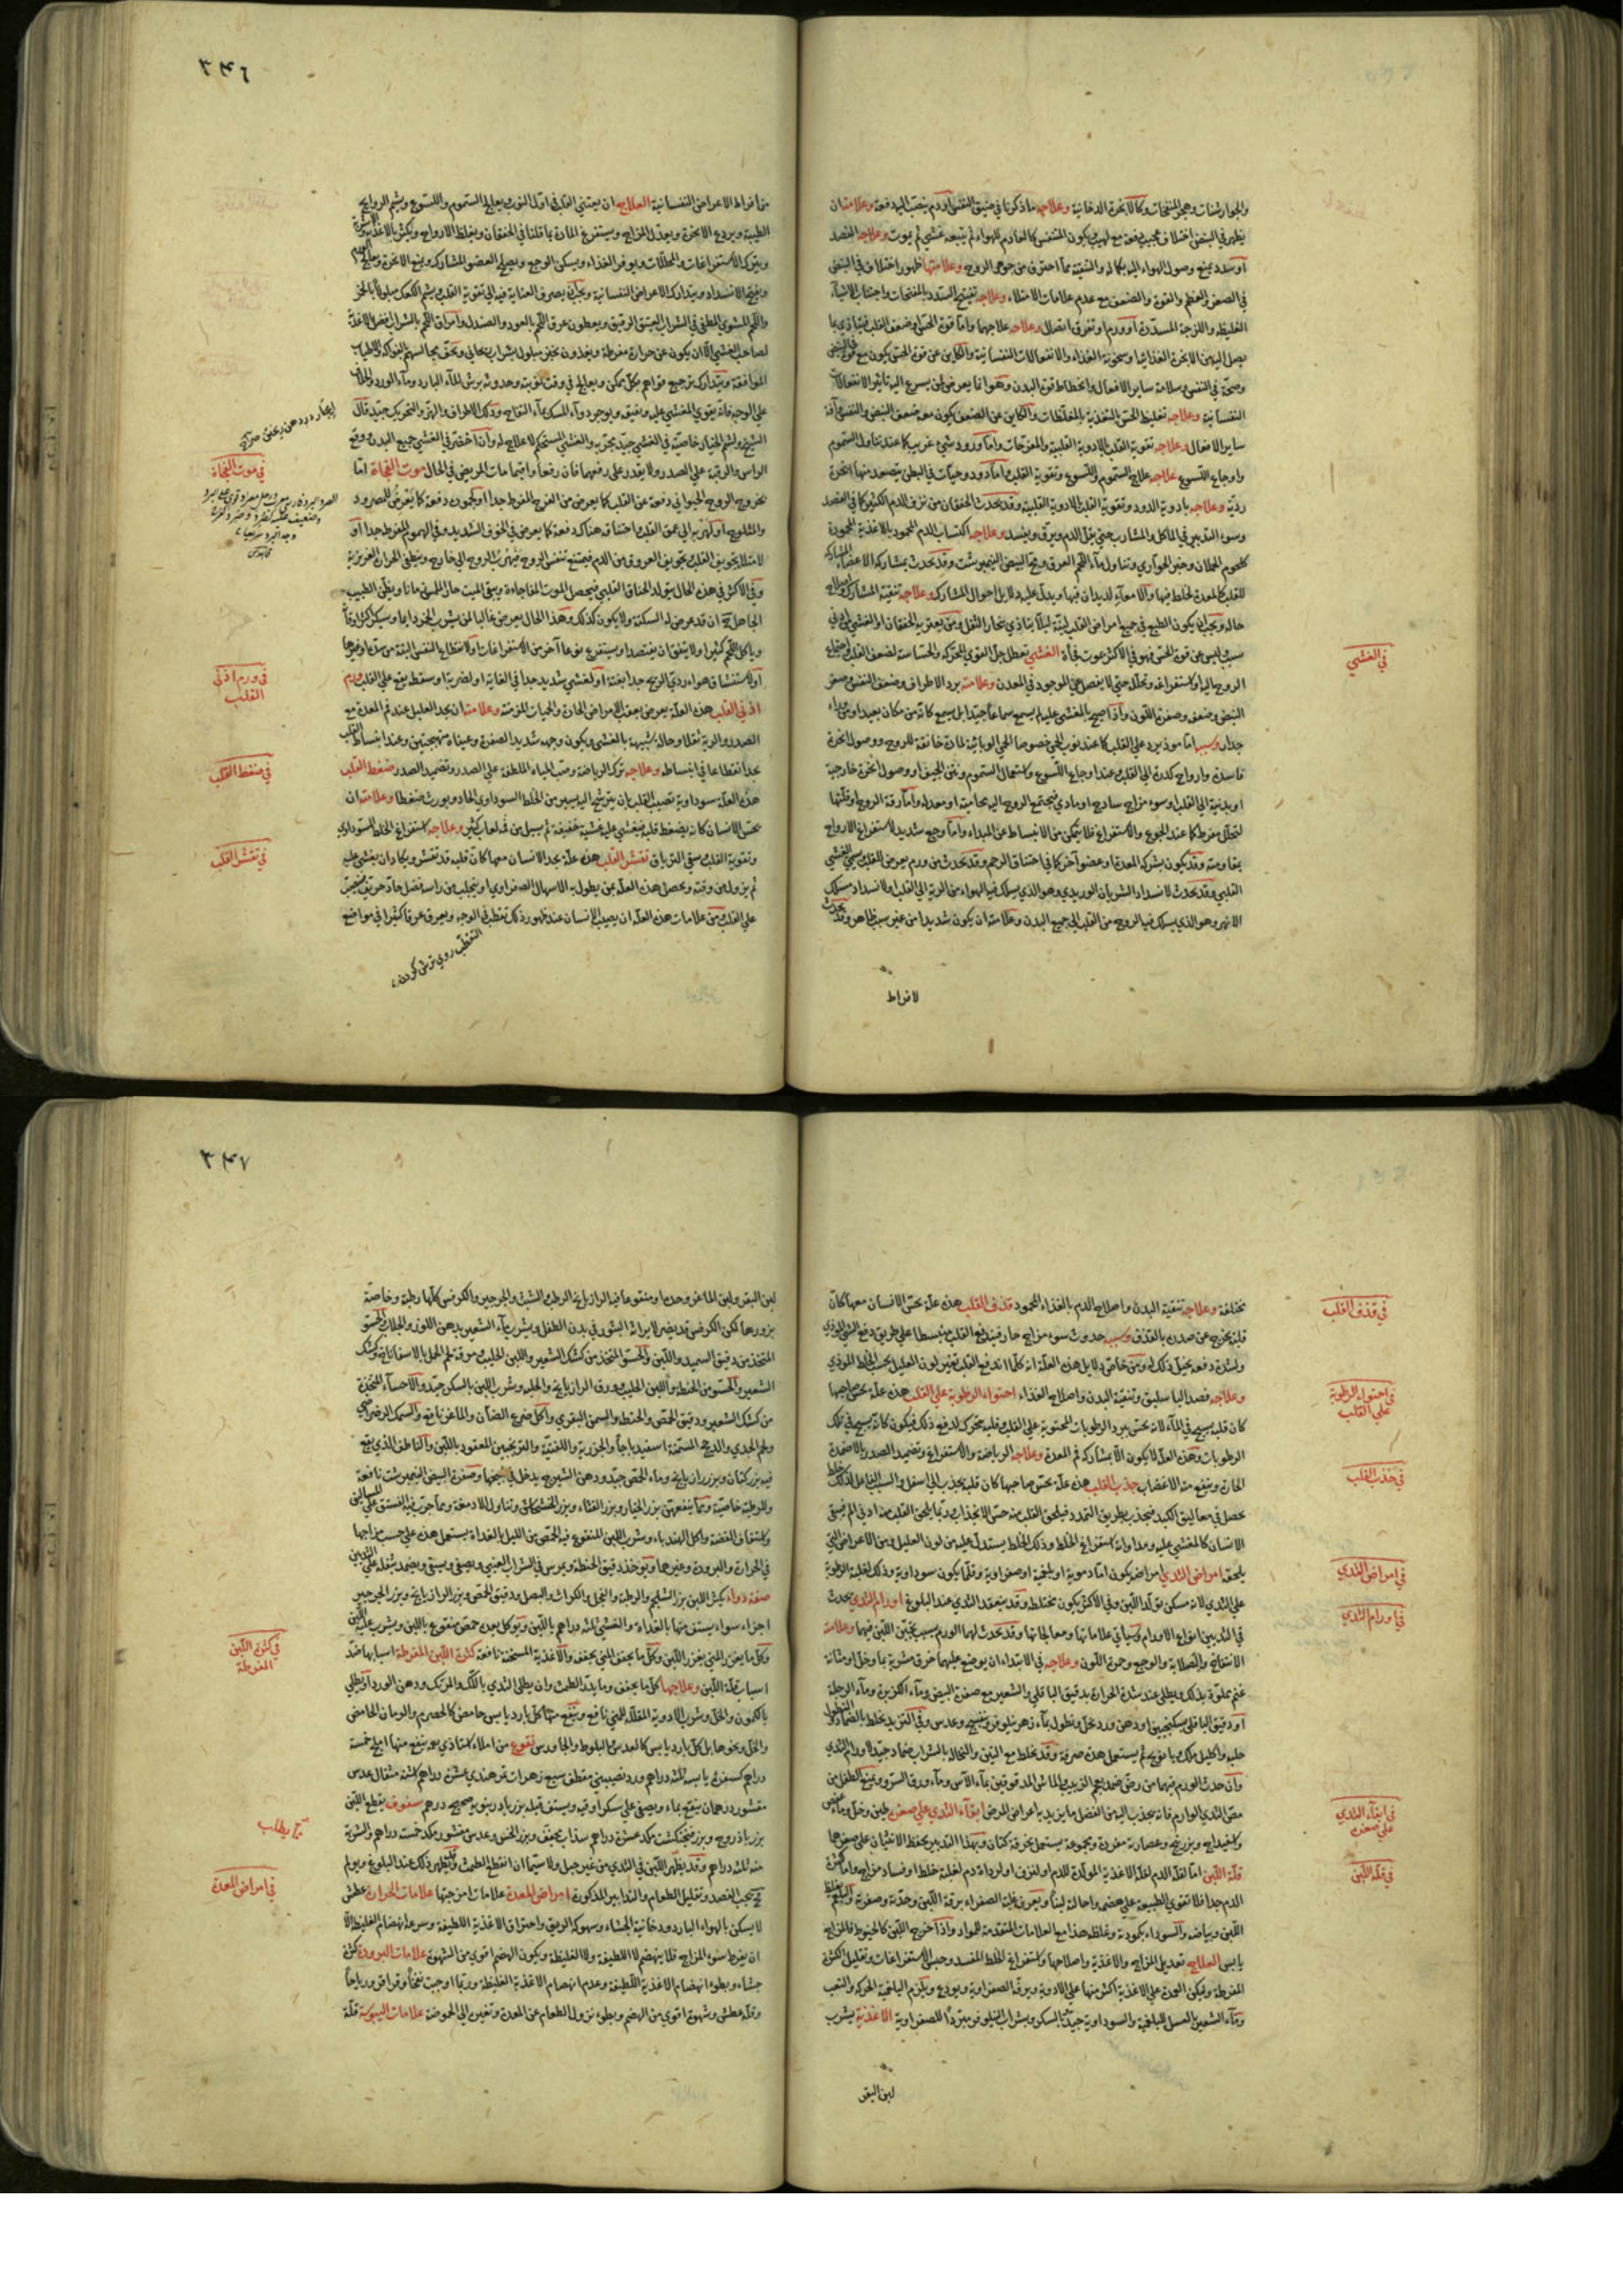 والجوارشنات وهجر المنفخات وكالابخرة الدخانية وعلاجه ما ذكرنا في ضيق النفس او دم ينصب اليه دفعة وعلامته ان
يظهر في النبض اختلاف عجيب دفعة مع لهيب ويكون المتنفس كالعادم للهواء ثم يتبعه غشي ثم يموت وعلاجه الفصد
او سدد يمنع وصول الهواء اليه بكماله والتنقية مما احترق من جوهر الروح وعلامتها ظهور اختلاف في النبض
في الصغر والعظم والقوة والضعف مع عدم علامات الامتلاء وعلاجه تفتيح السدد بالمفتحات واجتناب الاشياء
الغليظة واللزجة المسددة او ورم او تفرق اتصال وعلاجه علاجهما واما قوة الحس او ضعف القلب فيتاذى بما
يصل اليه من الابخرة الغذائية وسخونة الغذاء والانفعالات النفسانية والكاين عن قوة الحس يكون مع قوة النبض
وصحة في النفس وسلامة ساير الافعال وانحطاط قوة البدن وهو انما يعرض لمن يسرع اليه تاثير الانفعالات
النفسانية وعلاجه تغليظ الحس بالتغذية بالمغلظات والكاين عن الضعف يكون معه ضعف النبض والنفس وآفة
ساير الافعال وعلاجه تقوية القلب بالادوية القلبية والمفرحات واما ورود شيء غريب كما عند تناول السموم
واوجاع اللسوع علاجه علاج السموم واللسوع وتقوية القلب واما دود وحيات في البطن يتصعد منها ابخرة
ردية وعلاجه بادوية الدود وتقوية القلب بالادوية القلبية وقد يحدث الخفقان من نزف الدم الكثير كما في الفصد
وسوء التدبير في الماكل والمشارب حتى يقل الدم ويرق ويفسد وعلاجه اكتساب الدم المحمود بالاغذية المحمودة
كلحوم الحملان وخبز الحوارى وتناول ماء اللحم العرق ومح البيض النيمبرشت وقد يحدث بمشاركة الاعضاء المشاركة
للقلب كالمعدة لخلط فيها والامعاء لديدان فيها ويدل عليه دلايل احوال المشارك وعلاجه تنقية المشارك واصلاح
حاله ويجب ان يكون الطبع في جميع امراض القلب لينة ليلا يتاذى ببخار الثفل ومن يعتريه الخفقان او الغشي بادنى
سبب ليس عن قوة الحس فهو في الاكثر يموت فجأة الغشي تعطل جل القوى المحركة والحساسة لضعف القلب واجتماع
الروح اليه او استفراغه وتحلله حتى لا يفضل على الموجود في المعدن وعلامته برد الاطراف وضعف النفس وصغر
النبض وضعف وصفرة اللون واذا صيح بالمغشي عليه لم يسمع سماعا جيدا بل يسمع كانه من مكان بعيد او من وراء
جدار وسببه اما موذ يرد على القلب كما عند نوب الحمى خصوصا الحمى الوبائية لمادة خانقة للروح ووصول ابخرة
فاسدة وارواح كدرة الى القلب وعند اوجاع اللسوع واستعمال السموم ونتن الجيف او وصول ابخرة خارجية
او بدنية الى القلب او سوء مزاج ساذج او مادي فيجتمع الروح اليه بحاميته او معداه واما رقة الروح او قلتها
لتحلل مفرط كما عند الجوع والاستفراغ فلا يتمكن من الانبساط عن المبداء واما وجع شديد لاستفراغ الارواح
بمقاومته وقد يكون بشركة المعدة او عضو آخر كما في اختناق الرحم وقد يحدث من ورم يعرض القلب سمي الغشي
القلبي وقد يحدث لانسداد الشريان الوريدي وهو الذي يسلك فيه الهواء من الرية الى القلب او لانسداد مسلك
الابهر وهو الذي يسلك فيه الروح من القلب الى جميع البدن وعلامته ان يكون شديدا من غير سبب ظاهر وقد يحدث
لافراط
في الغشي
٣٤٦
من افراط الاعراض النفسانية العلاج ان يعتنى القلب في اول النوب يعالج السموم واللسوع وشم الروايح
الطيبة ويردع الابخرة ويعدل المزاج ويستفرغ المادة بما قلنا في الخفقان ويغلظ الارواح ويكثر بالاغذية والاشربة
ويترك الاستفراغات والمحللات ويوفر الغذاء ويسكن الوجع ويصلح العضو المشارك ويمنع الابخرة ويعالج الورم
ويفتح الانسداد ويتدارك الاعراض النفسانية ويجب ان يصرف العناية فيه الى تقوية القلب بشم الكعك مبلولا بالخمر
واللحم المشوي المطفى في الشراب العتيق الرقيق ويعطون عرق اللحم بالعود والصندل وامراق اللحم بالشراب افضل الاغذية
لصاحب الغشي الا ان يكون عن حرارة مفرطة ويغذون بخبز مبلول بشراب ريحاني ويخفف يجا اليهم الفواكه والاطياب
الموافقة ويتدارك بترجيع قواهم بكل ممكن ويعالج في وقت نوبته وحدوثه برش الماء البارد وماء الورد والخلاف
على الوجه فانه يقوي المغشي عليه ويفيق ويوجر دواء المسك بماء التفاح ودلك الاطراف والهز والتحريك جيد قال
الشيخ ولشم الخيار خاصية في الغشي جيد مجرب والغشي المستحكم لا علاج له وان اخضر في الغشي جميع البدن ووقع
الراس والرقبة على الصدر ولا يقدر على رفعهما فان رفعا وانتصابا مات المريض في الحال موت الفجاة اما
بخروج الروح الحيواني دفعة عن القلب كما يعرض من الفرح المفرط جدا او لجمود دفعة كما يعرض للمصرود
والمثلوج او لهربه الى عمق القلب واختناقه هناك دفعة كما يعرض في الخوف الشديد وفي الهموم المفرط جدا او
لامتلاء تجويف القلب وتجويف العروق من الدم فيمتنع تنفس الروح فتهرب الروح الى خارج وينطفي الحرارة الغريزية
وفي الاكثر في هذه الحال يتولد الخناق القلبي فيحصل الموت المفاجاءة ويبقى الميت حارا لمس زمانا ويظن الطبيب
الجاهل ان قد عرض له السكتة ولا يكون كذلك وهذا الحال يعرض غالبا لمن يشرب الخمر دايما ويسكر كثر اوقاته
وياكل اللحم كثيرا ولا يتفق ان يفتصد او يستفرغ نوعا آخر من الاستفراغات والانقطاع النفس البتة من سدة او غيرها
او لاستنشاق هواء ردي الريح جدا بغتة او لغشي شديد جدا في الغاية او لضربة او سقطة يقع على القلب ورم
اذني القلب هذه العلة يعرض بعقب الامراض الحادة والحميات المزمنة وعلامته ان يجد العليل عند فم المعدة مع
الصدر والرية ثقلا وحالة شبيهة بالغشي ويكون وجهه شديد الصفرة وعيناه متهيجتين وعند انبساط القلب
يجد انقطاعا في انبساطه وعلاجه ترك الرياضة وصب المياه الملطفة على الصدر وتضميد الصدر ضغط القلب
هذه العلة سوداوية تصيب القلب بان يترشح اليه يسير من الخلط السوداوي الحاد ويورث ضغطا وعلامته ان
يحس الانسان كانه يضغط قلبه فيغشى عليه غشية خفيفة ثم يسيل من فمه لعاب كثير وعلاجه استفراغ الخلط السوداوي
وتقوية القلب وسقي الترياق تقشر القلب هذه علة يجد الانسان معها كان قلبه قد تقشر ويكاد ان يغشى عليه
ثم يزول من وقته ويحصل هذه العلة لمن يطول به الاسهال الصفراوي او يتحلب من راسه فضل حاد حريف منصب
على القلب ومن علامات هذه العلة ان يصيب الانسان عند ظهور ذلك تقطب في الوجه ويعرق عرقا كثيرا في مواضع
التقطب روي ترش كردن
في موت الفجاة
في ورم اذني
القلب
في ضغط القلب
في تقشر القلب
مختلفة وعلاجه تنقية البدن واصلاح الدم بالغذاء المحمود قذف القلب هذه علة يحس الانسان معها كان
قلبه يخرج عن صدره بالقذف وسببه حدوث سوء مزاج حار فيندفع القلب منبسطا على طريق دفع الشيء الموذي
ولشدة دفعه يخيل ذلك له ومن خاص دلايل هذه العلة انه كلما اندفع القلب تغير لون العليل بحسب الخلط الموذي
وعلاجه فصد الباسليق وتنقية البدن واصلاح الغذاء احتواء الرطوبة على القلب هذه علة يحس صاحبها
كان قلبه يسبح في الماء لانه يحس ببرد الرطوبات المحتوية على القلب وقلبه يتحرك لدفع ذلك فيكون كانه يسبح في تلك
الرطوبات وهذه العلة لا يكون الا بمشاركة فم المعدة وعلاجه الرياضة والاستفراغ وتضميد الصدر بالاضمدة
الحارة وينفع منه الاغضاب جذب القلب هذه علة يحس صاحبها كان قلبه يجذب الى اسفل والسبب الفاعل لذلك خلط
يحصل في معاليق الكبد فيجذب بطريق التمدد فيلحق القلب منه حس الانجذاب وربما يلحق القلب منه اذى الم فيبقى
الانسان كالمغشي عليه ومداواته استفراغ الخلط وذلك الخلط يستدل عليه من لون العليل ومن الاعراض التي
يلحقه امراض الثدي امراضه يكون اما دموية او بلغمية او صفراوية وقلما يكون سوداوية وذلك لغلبة الرطوبة
على الثدي لانه مسكن تولد اللبن وفي الاكثر يكون مختلطة وقد ينعقد الثدي عند البلوغ اورام الثدي يحدث
في الثديين انواع الاورام وسياتي علاماتها ومعالجاتها وقد يحدث لهما الورم بسبب تجبن اللبن فيهما وعلامته
الانتفاخ والصلابة والوجع وحمرة اللون وعلاجه في الابتداء ان يوضع عليهما خرق مشربة بماء وخل او مثانة
غنم مملوة بذلك ويطلى عند شدة الحرارة بدقيق الباقلى والشعير مع صفرة البيض وماء الكزبرة وماء الرجلة
او دقيق الباقلى بسكنجبين او دهن ورد بخل ونطول بماء زهر نيلوفر وبنفسج وعدس وفي التزيد يخلط بالضماد والنطول
حلبة واكليل ملك وبابونج ثم يستعمل هذه صرفة وقد يخلط مع التبن والنخالة بالشراب ضماد جيد لاورام الثدي
وان حدث الورم فيهما من رض ضمد بعجم الزبيب والماش المدقوقين بماء الآس وماء ورق السرو ويمنع الطفل من
مص الثدي الوارم فانه يجذب اليه من الفضل ما يزيد باعراض المرض ابقاء الثدي على صغره طين وخل وماء عفص
واسفيداج وبزر بنج وعصارته مفردة ومجموعة يستعمل بخرقة كتان وبهذا التدبير يحفظ الانثيان على صغرهما
قلة اللبن اما لقلة الدم لقلة الاغذية المولدة للدم او لنزف او لرداءة دم لغلبة خلط او فساد مزاج واما كثرة
الدم جدا فلا تقوى الطبيعة على هضمه واحالته لبنا ويعرف غلبة الصفراء برقة اللبن وحدته وصفرته والبلغم بغلظ
اللبن وبياضه والسوداء بكمودته وغلظه هذا مع العلامات المتقدمة للمواد واذا خرج اللبن كالخيوط فالمزاج
يابس العلاج تعديل المزاج والاغذية واصلاحها واستفراغ الخلط المفسد وحبس الاستفراغات وتقليل الكثرة
المفرطة وليكن العمدة على الاغذية اكثر منها على الادوية ويرفه الصفراوية ويودع ويلزم البلغمية الحركة والتعب
وماء الشعير بالعسل للبلغمية والسوداوية جيد وبالسكر وبشراب النيلوفر مبردا للصفراوية الاغذية يشرب
لبن البقر
في قذف القلب
في احتواء الرطوبة
على القلب
في جذب القلب
في امراض الثدي
في اورام الثدي
في ابقاء الثدي
على صغره
في قلة اللبن
٣٤٧
لبن البقر ولبن الماعز وحده او منقوعا فيه الرازيانج الرطب والشبت والجرجير والكرفس كلها رطبة وخاصة
بزورها لكن الكرفس قد يضر لايراثه البثور في بدن الطفل ويشرب ماء الشعير بدهن اللوز والجلاب والحسو
المتخذ من دقيق السميد واللبن والحسو المتخذ من كشك الشعير واللبن الحليب ومرقة لحم الحمل بالاسفاناخ وكشك
الشعير والحسو من الحنطة واللبن الحليب وورق الرازيانج والحلبة وشرب اللبن بالسكر جيد والاحساء المتخذة
من كشك الشعير ودقيق الحمص والحنطة والسمن البقري واكل ضرع الضأن والماعز نافع والسمك الرضراضي
ولحم الجدي والدجج المسمنة اسفيدباجا والجزرية واللفتية والترنجبين المعقود باللبن والناطف الذي يقع
فيه بزر كتان وبزر رازيانج وماء الحمص جيد ودهن الشيرج يدخل في جميعها وصفرة البيض النيمبرشت نافعة
وللرطبة خاصية ومما ينفعهن بزر الخيار وبزر القثاء وبزر الخشخاش وتناول الادمغة ومما جرب فيه الفستق على الريق
واستفاف الفضة واكل الهندباء وشرب اللبن المنقوع فيه الحمص من الليل بالغداة يستعمل هذه على حسب مزاجها
في الحرارة والبرودة وغيرهما ويوخذ دقيق الحنطة ويمرس في الشراب العتيق ويصفى ويسقى ويضمد بثفله على الثديين
صفة دواء يكثر اللبن بزر الشلجم والرطبة والفجل والكراث والبصل ودقيق الحمص وبزر الرازيانج وبزر الجرجير
اجزاء سواء يستف منها بالغداة والعشي ثلثة دراهم باللبن ويوكل بعده حمص منقوع باللبن ويشرب عليه اللبن
وكل ما يغزر المني يغزر اللبن وكل ما يجفف المني يجففه والاغذية المسخنة نافعة كثرة اللبن المفرطة اسبابها ضد
اسباب قلة اللبن وعلاجها كل ما يجفف وما يدر الطمث وان يطلى الثدي باللك والمرتك ودهن الورد او يطلى
بالكمون والخل وشرب الادوية المقللة للمني نافع وينفع منها كل بارد يابس حامض كالحصرم والرمان الحامض
والخل ونحوها بل كل بارد يابس كالعدس والبلوط والجاورس نقوع من املاء استاذي رحمه الله ينفع منها املج خمسة
دراهم كسفرة يابسة ثلثة دراهم ورد نصيبيني مقطف سبع زهرات تمر هندي عشرة دراهم كشنه مثقال عدس
مقشور درهمان ينقع بماء ويصفى على سكر اوقية ويستف قبله بزر بادرنبويه صحيح درهم سفوف يقطع اللبن
بزر باذروج وبزر فنجنكشت مكد عشرة دراهم سذاب مجفف وبزر الخس وعدس مقشور مكد خمسة دراهم والشربة
منه ثلثة دراهم وقد يظهر اللبن في الثدي من غير حبل ولا سيما ان انقطع الطمث وقد يظهر ذلك عند البلوغ ويولم
يجب الفصد وتقليل الطعام والتدابير المذكورة امراض المعدة علامات امزجتها علامات الحرارة عطش
لا يسكن بالهواء البارد ودخانية الجشاء وسهوكة الريق واحتراق الاغذية اللطيفة وسرعة انهضام الغليظة الا
ان يفرط سوء المزاج فلا ينهضم لا اللطيفة ولا الغليظة ويكون الهضم اقوى من الشهوة علامات البرودة كثرة
جشاء وبطوء انهضام الاغذية اللطيفة وعدم انهضام الاغذية الغليظة وربما اوجبت نفخا وقراقر ورياحا
وقلة عطش وشهوة اقوى من الهضم وبطوء نزول الطعام عن المعدة وتغير الى الحموضة علامات اليبوسة قلة
في كثرة اللبن
المفرطة
في امراض المعدة